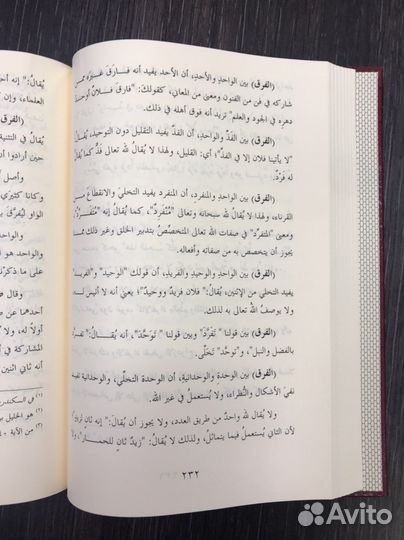 (الفرق) بين الواحد والأحد، أن الأحد يفيد أنه فارق غيره ممن
شاركه في فن من الفنون ومعنى من المعاني، كقولك: "فارق فلان أوحد
دهره في الجود والعلم" تريد أنه فوق أهله في ذلك.
(الفرق) بين الفذّ والواحد، أن الفذّ يفيد التقليل دون التوحيد، يُقالُ:
"لا يأتينا فلان إلا في الفذّ" أي: القليل، ولهذا لا يُقالُ لله تعالى فذّ كما يُقالُ
له فَرْدٌ.
(الفرق) بين الواحد والمنفرد، أن المنفرد يفيد التخلي والانقطاع من
القرناء، ولهذا لا يُقالُ لله سبحانه وتعالى "مُنْفَرِد"، كما يُقالُ إنه "مُتَفَرِّد"،
ومعنى "المتفرّد" في صفات الله تعالى المتخصصُ بتدبير الخلق وغير ذلك مما
يجوز أن يتخصص به من صفاته وأفعاله.
(الفرق) بين الواحد والوحيد والفريد، أن قولك "الوحيد" و"الفريد"
يفيد التخلي من الإثنين، يُقالُ: "فلان فريدٌ ووحيدٌ"؛ يعني أنه لا أنيس له،
ولا يوصفُ الله تعالى به لذلك.
(الفرق) بين قولنا "تَفَرَّدَ" وبين قولنا "تَوَحَّدَ"، أنه يُقالُ: "تفرّد
بالفضل والنبل"، و"توحّد" تَخَلّى.
(الفرق) بين الوحدة والوحدانية، أن الوحدة التخلّي، والوحدانية تفيد
نفيَ الأشكال والنُّظراء، ولا يُستعملُ في غير الله.
ولا يُقال لله واحدٌ من طريق العدد، ولا يجوز أن يُقالَ: "إنه ثانٍ لزيد"
لأن الثاني يُستعملُ فيما يتماثلُ، ولذلك لا يُقالُ: "زيدٌ ثانٍ للحمار"، ولا
٢٣٢
يُقالُ: "إنه أحد
العلماء، وإن
(الفرق)
يُقالُ في التثنية
حين أرادوا أن
وأصل
وكانا
الواو
والواحد
على ما ذكرنا
وقال
أحدهما عن
أولاً له، ولا
المشاركة في
أنه ثاني اثنين
(١) في السكندرية
(٢) هو الخليل
(٣) من الآية
Avito